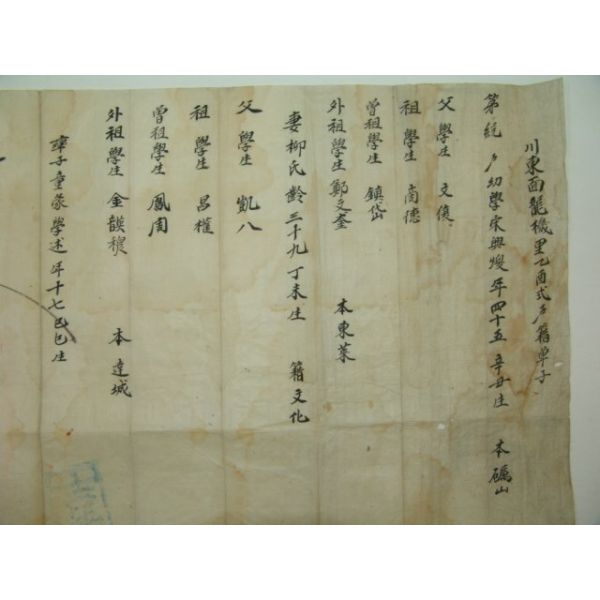 川東面龍機里乙酉式戶籍單子
第 統 戶幼學宋興焌年四十五辛丑生 本礪山
父 學生 文俊
祖 學生 尚德
曾祖學生 鎮岱
外祖學生鄭文奎 本東萊
妻柳氏齡三十九丁未生 籍文化
父 學生 凱八
祖 學生 呂權
曾祖學生 鳳周
外祖學生 金韺穆 本達城
率子童蒙學述年十七己巳生